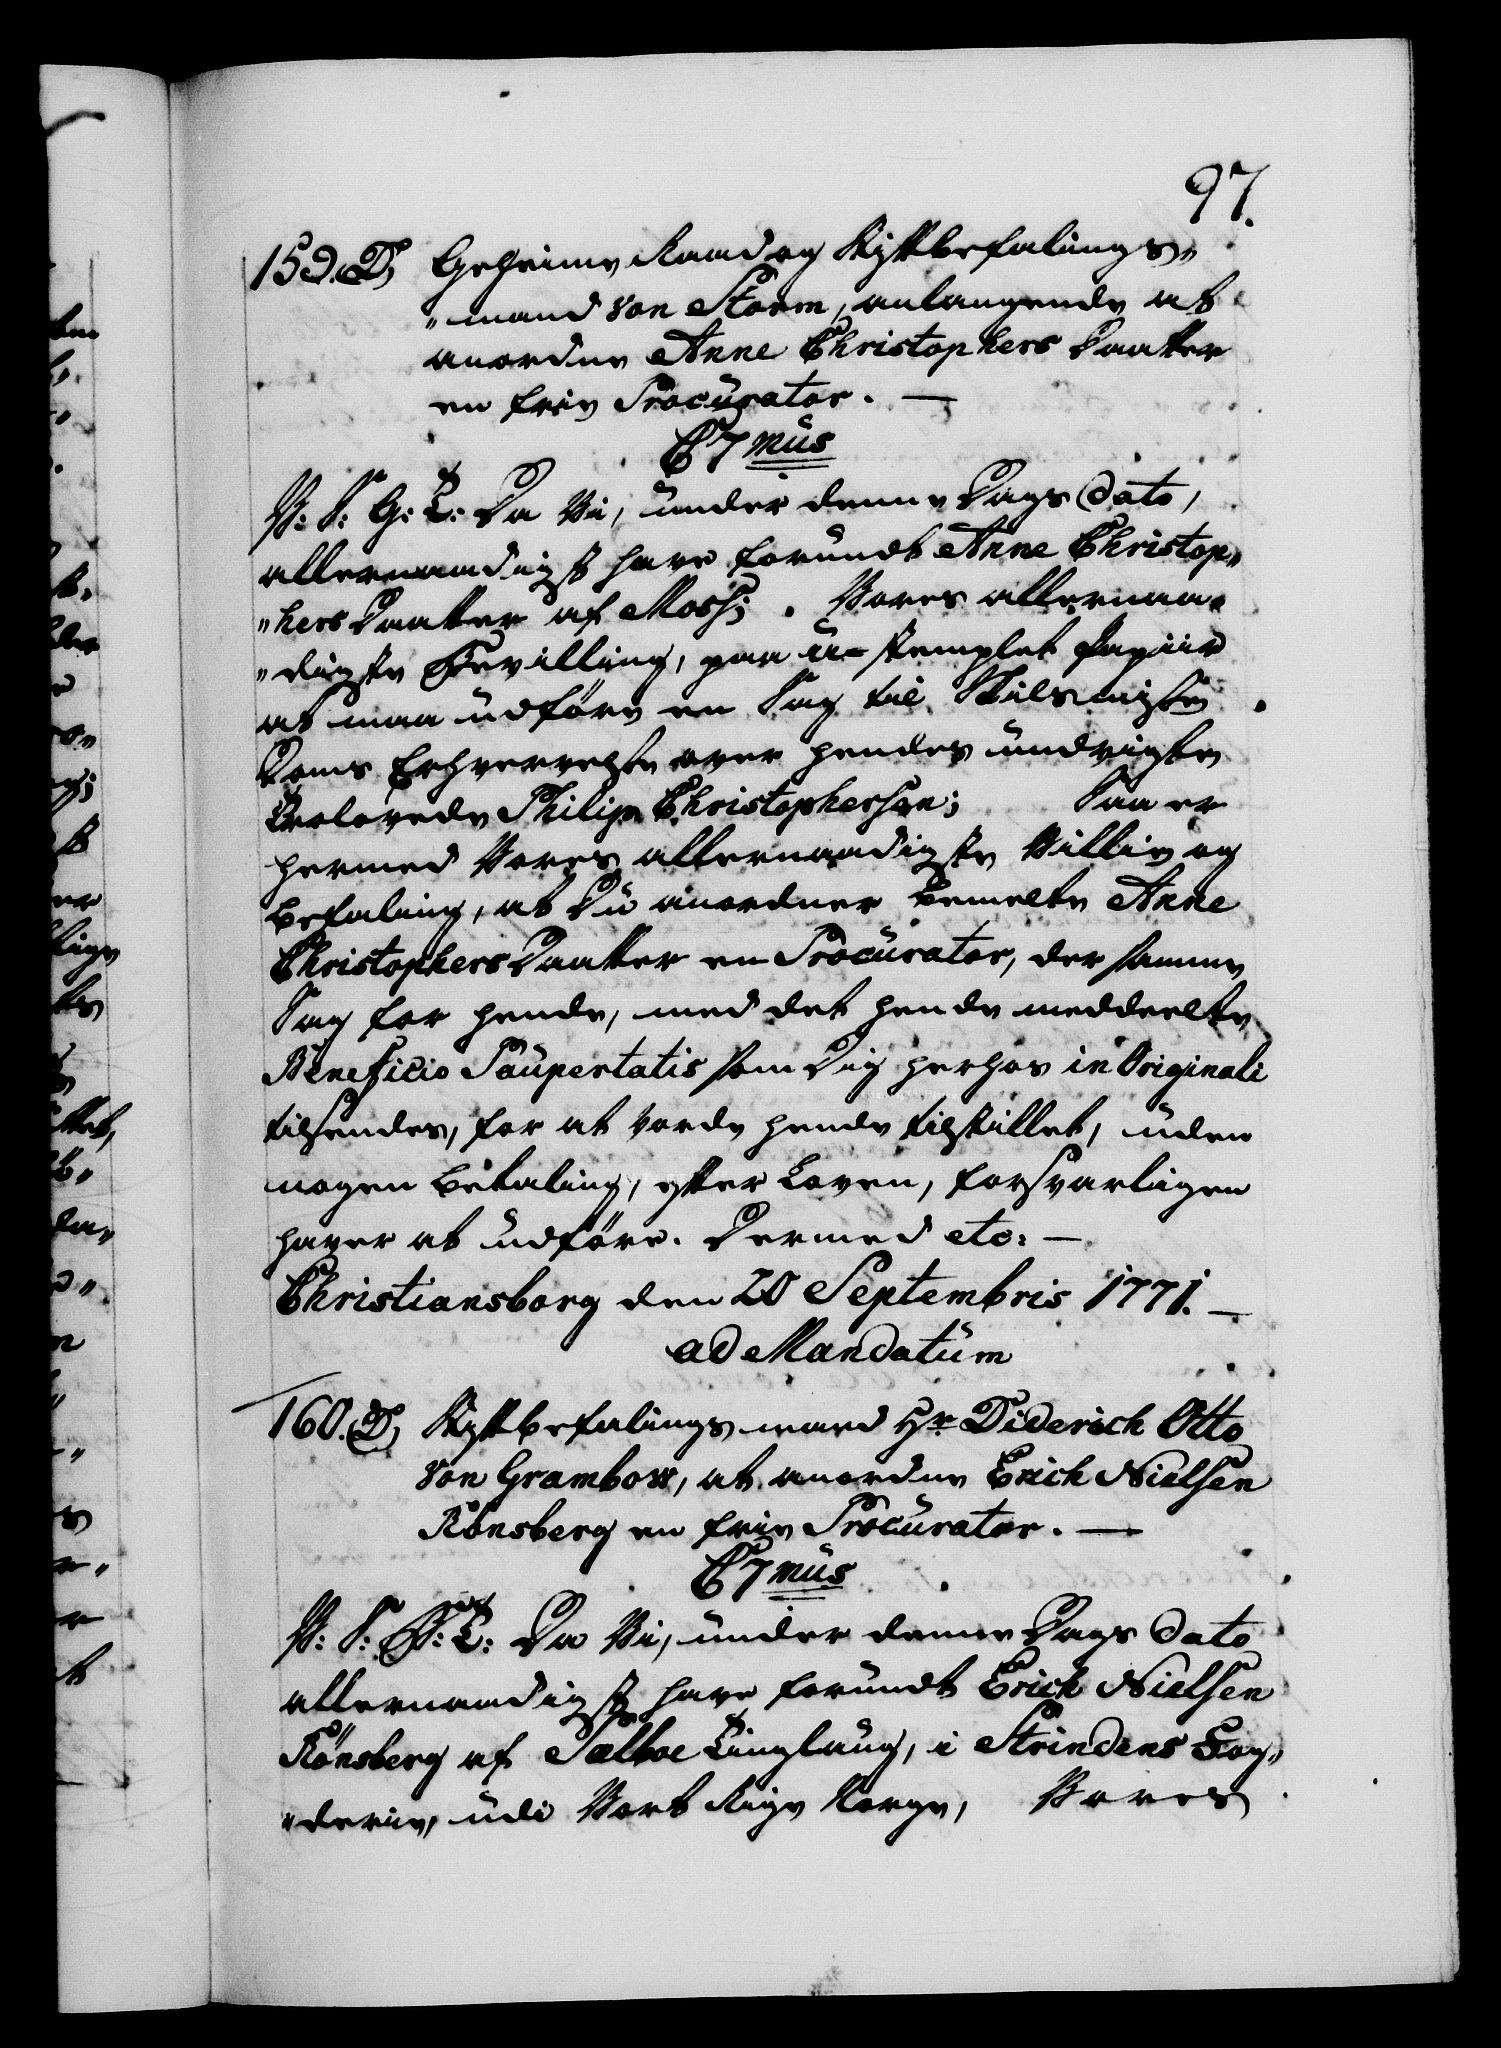 97.
159. D, Geheime Raad og Stiftbefalings,,
,,mand von Storm, anlangende at
anordne Anne Christophers Daatter
en frie Procurator. —
C7mus
V: S: G: T: Da Vi, under denne Dags Dato,
allernaadigst have forundt Anne Christop,,
,,hers Daatter af Moss; . Vores allernaa,,
,,digste Bevilling, paa u-stemplet Papiir
at maa udföre en Sag til Skilsmisse
Doms Erhvervelse over hendes undvigte
Trolovede Philip Christophersen; Saa er
hermed Vores allernaadigste Villie og
Befaling, at Du anordner bemelte Anne
Christophers Daatter en Procurator, der samme
Sag for hende, med det hende meddeelte
Beneficio Paupertatis som Dig herhos in Originali
tilsendes, for at vorde hende tilstillet, uden
nogen Betaling, efter Loven, forsvarligen
haver at udföre. Dermed etc: —
Christiansborg den 20 Septembris 1771. —
ad Mandatum
160. D, Stiftbefalingsmand Hr Diderich Otto
von Grambow, at anordne Erich Nielsen
Rönsberg en frie Procurator. —
C7mus
V: S: G: T: Da Vi, under denne Dags Dato
allernaadigst have forundt Erich Nielsen
Rönsberg af Sælboe Tinglaug, i Strindens Fog,,
,,derie, udi Vort Rige Norge, Vores